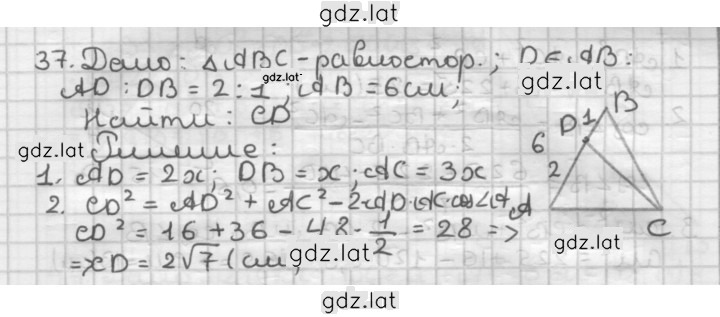 gdz.lat
37. Дано: △ABC - равностор.; D∈AB:
gdz.lat
AD : DB = 2 : 1; AB = 6 см;
Найти: CD
gdz.lat
Решение:
1. AD = 2x; DB = x; AC = 3x
2. CD² = AD² + AC² - 2·AD·AC·cos∠A
CD² = 16 + 36 - 48 · 1/2 = 28 =>
=> CD = 2√7 (см)
gdz.lat
B
D 1
6
2
A
C
gdz.lat
gdz.lat